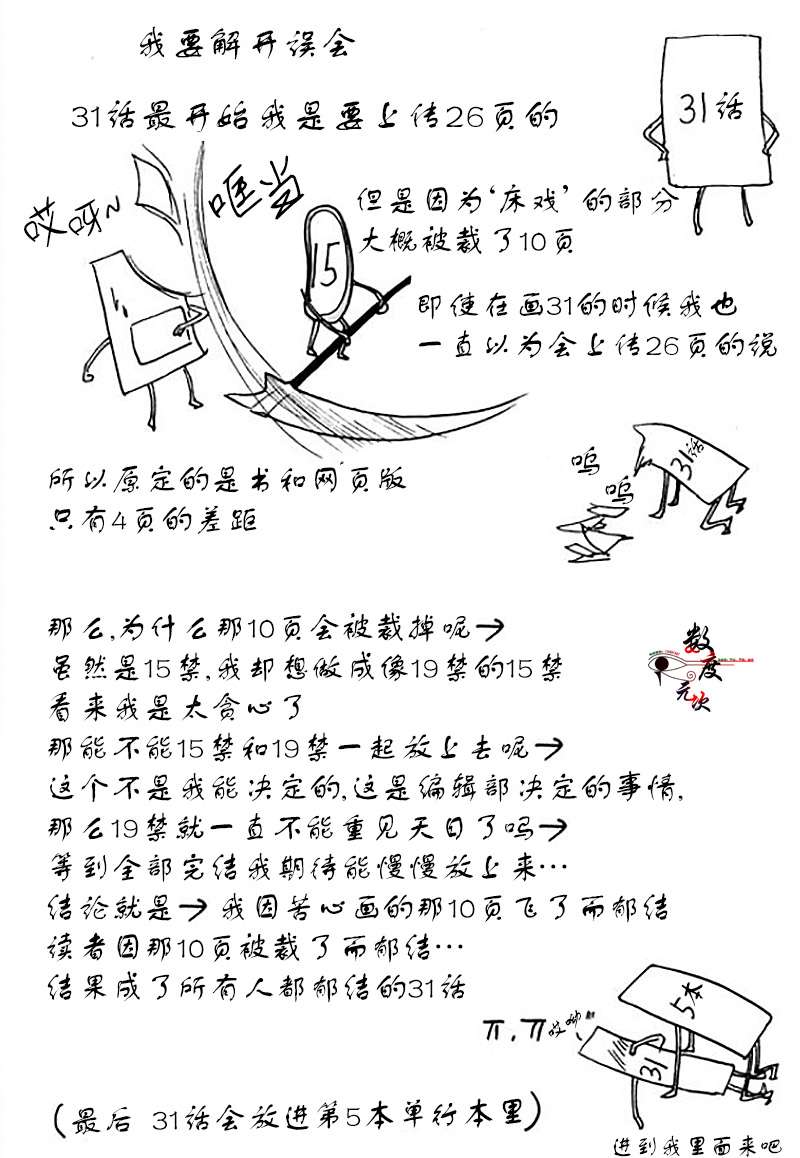 我要解开误会
31话最开始我是要上传26页的
31话
哎呀~
哐当
15
但是因为‘床戏’的部分
大概被裁了10页
即使在画31的时候我也
一直以为会上传26页的说
31话
呜
呜
所以原定的是书和网页版
只有4页的差距
那么,为什么那10页会被裁掉呢→
虽然是15禁,我却想做成像19禁的15禁
看来我是太贪心了
那能不能15禁和19禁一起放上去呢→
这个不是我能决定的,这是编辑部决定的事情,
那么19禁就一直不能重见天日了吗→
等到全部完结我期待能慢慢放上来…
结论就是→ 我因苦心画的那10页飞了而郁结
读者因那10页被裁了而郁结…
结果成了所有人都郁结的31话
数
度
元
次
5本
31
ㅠ.ㅠ哎呦
(最后 31话会放进第5本单行本里)
进到我里面来吧